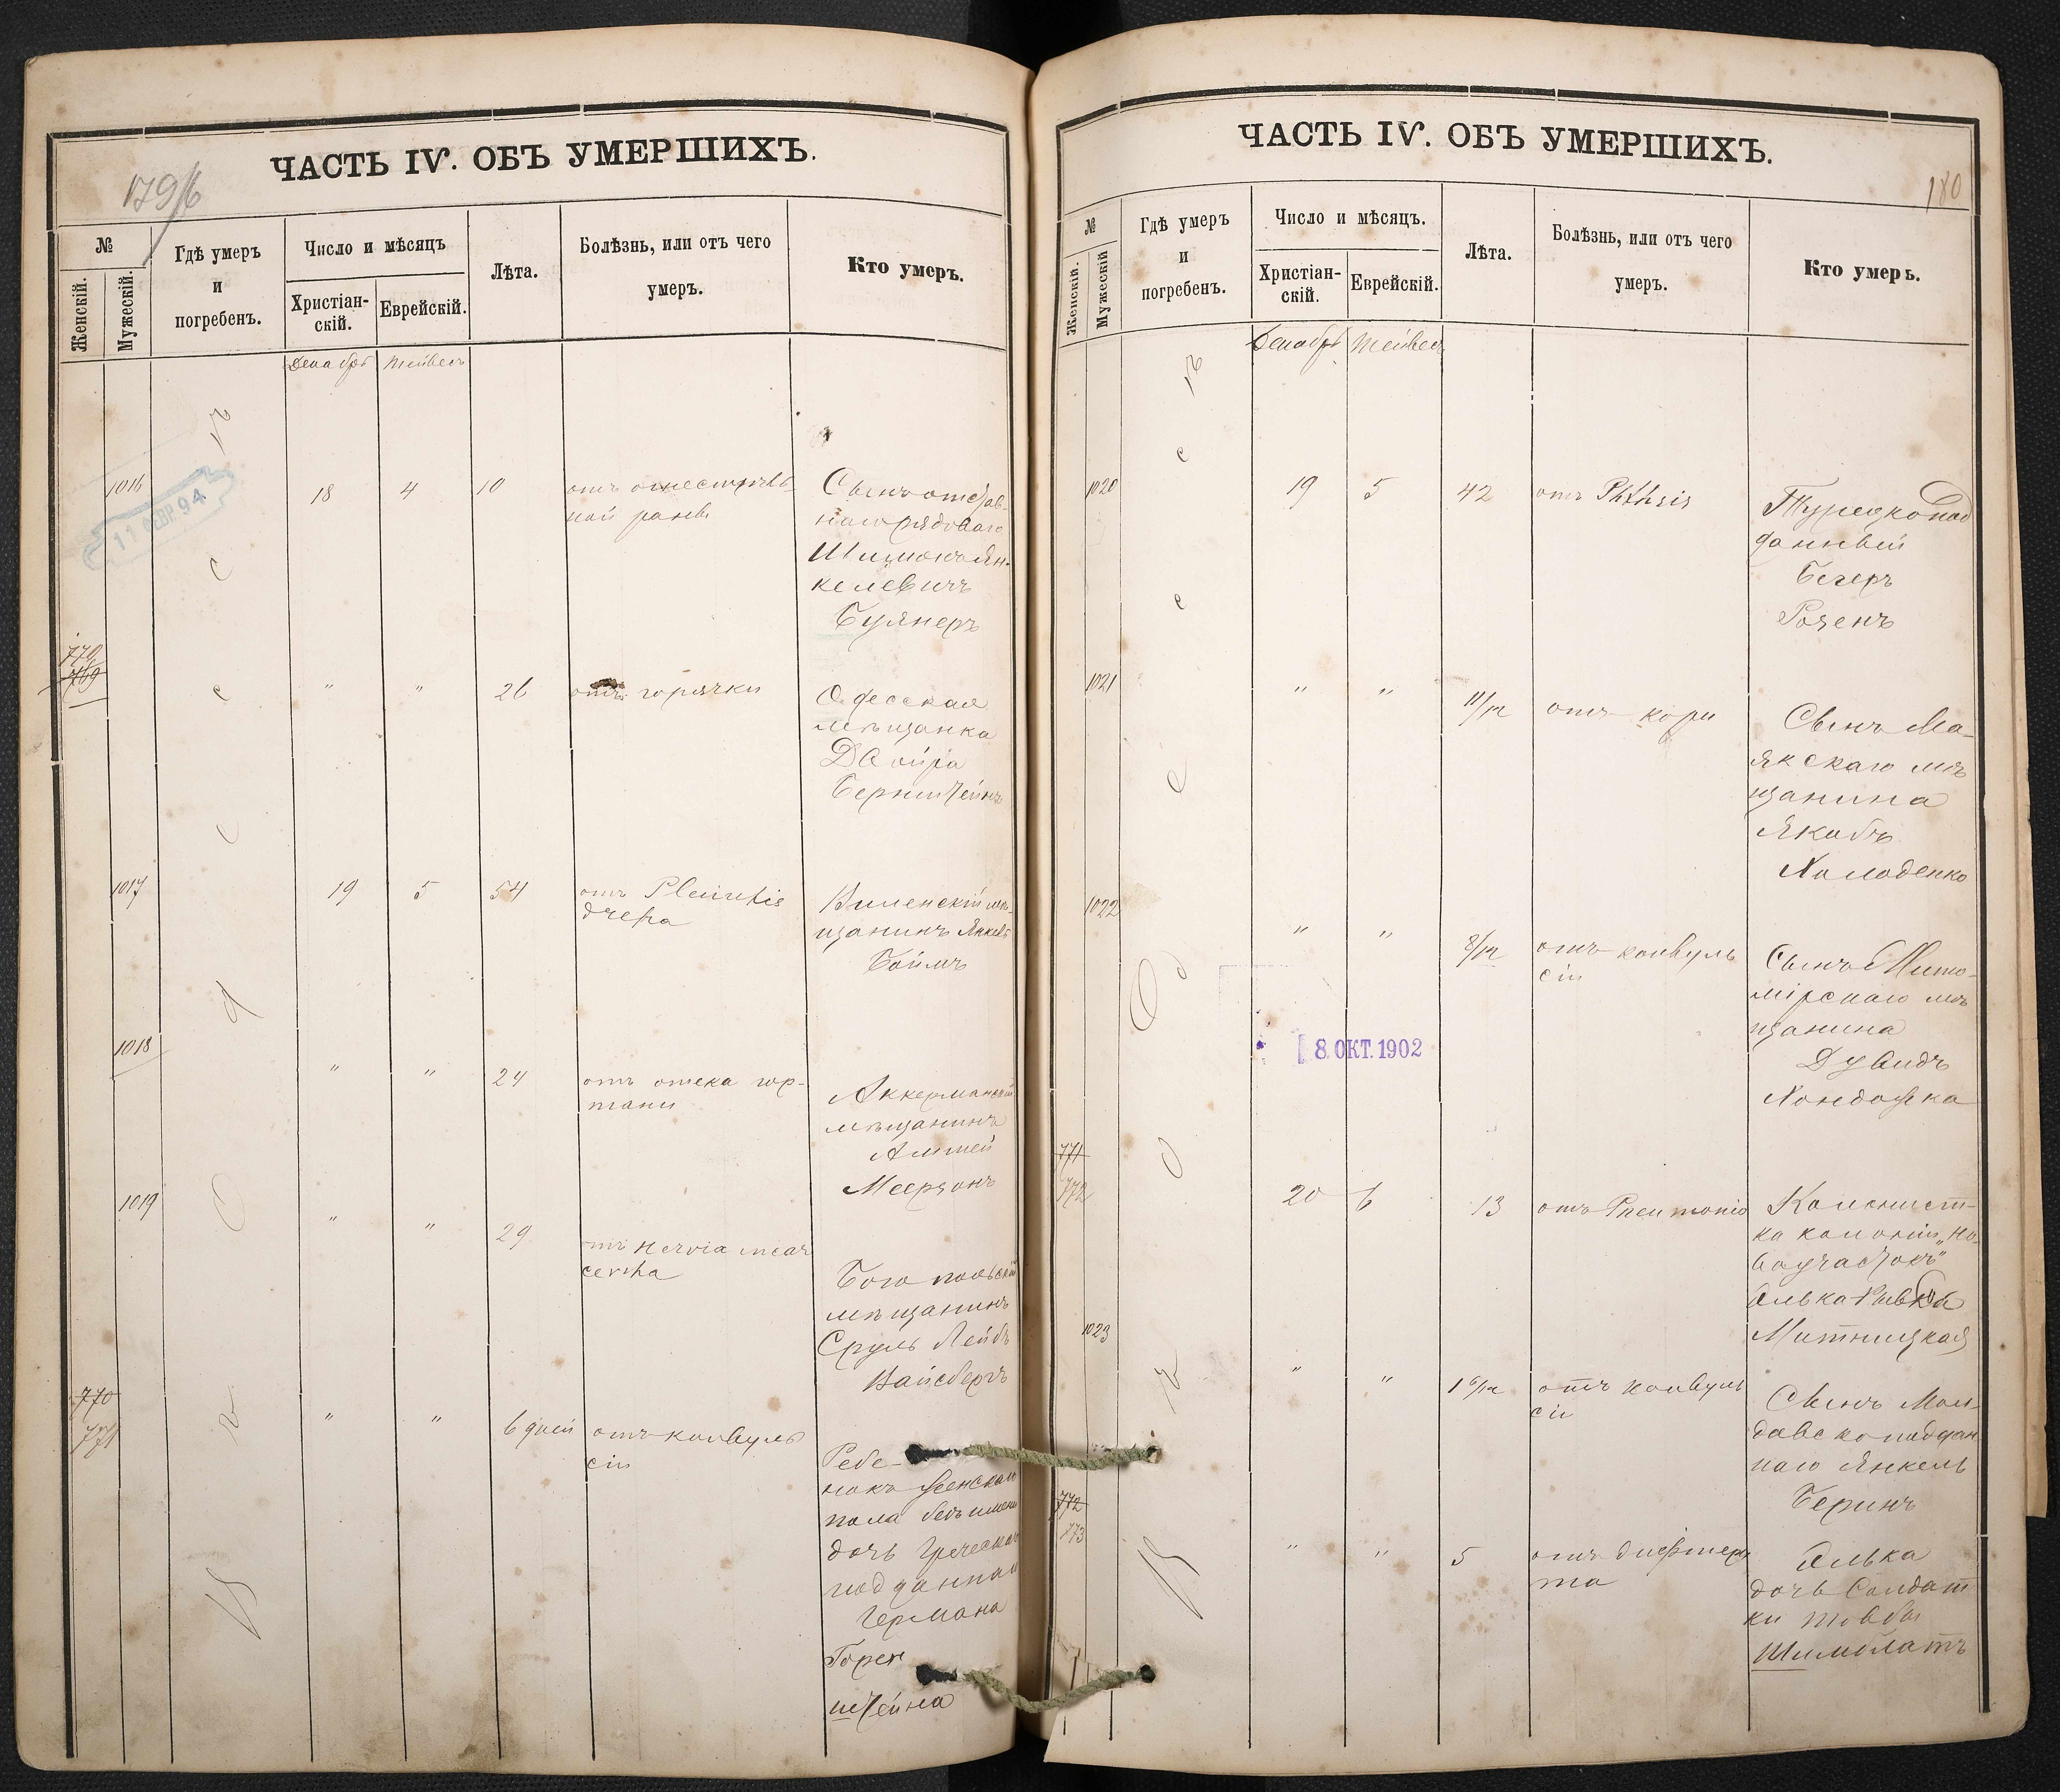 ЧАСТЬ IV. ОБЪ УМЕРШИХЪ.
179/б
№
Женскій.
Мужескій.
Гдѣ умеръ
и
погребенъ.
Число и мѣсяцъ
Христіан-
скій.
Еврейскій.
Лѣта.
Болѣзнь, или отъ чего
умеръ.
Кто умеръ.
Декабрь Тейвесъ
Въ г Одессѣ
11 ФЕВР. 94
1016 18 4 10
ной раны
Сынъ отстав-
наго рядоваго
Шимонъ Ян-
келевичъ
Буянеръ
770
769
" " 26 отъ горячки
Одесская
мѣщанка
Двойра
Бернштейнъ
1017 19 5 54 отъ
Виленскій мѣ-
щанинъ Янкель
Боймъ
1018 " " 24 отъ отека гор-
тани
Аккерманскій
мѣщанинъ
Мееръзонъ
1019 " " 29
Богопольскій
мѣщанинъ
Сруль Лейбъ
Вайсбергъ
770
771
" " 6 дней отъ конвуль
сіи
Ребе-
нокъ женскаго
пола безъ имени
дочь Греческаго
подданнаго
Германа
Горен
штейна
ЧАСТЬ IV. ОБЪ УМЕРШИХЪ.
180
№
Женскій.
Мужескій
Гдѣ умеръ
и
погребенъ.
Число и мѣсяцъ.
Христіан-
скій.
Еврейскій.
Лѣта.
Болѣзнь, или отъ чего
умеръ.
Кто умеръ.
Декабрь Тейвесъ
Въ г Одессѣ
1020 19 5 42 отъ Phthsis
Турецкопод
данный
Бегеръ
Розенъ
1021 " " 11/12 отъ кори
Сынъ Ма-
якскаго мѣ
щанина
Якобъ
Холоденко
1022 " " 8/12 отъ конвуль
сіи
Сынъ Жито-
мірскаго мѣ
щанина
Дувидъ
Хондошка
8. ОКТ. 1902
771
772
20 6 13 отъ Pneumonio
Колонист-
ка колоніи „Но-
воучастокъ"
Элька Рывка
Митницкая
1023 " " 1 6/12 отъ конвуль
сіи
Сынъ Мол-
давскоподдан
наго Янкель
Беринъ
772
773
" " 5 отъ дифтери
та
Элька
дочь Солдат
ки Товбы
Шимблатъ